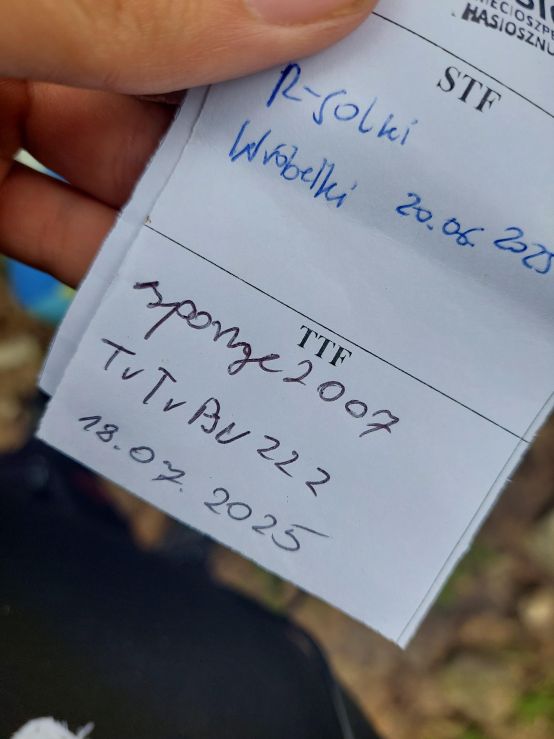 HASIOSZNU
STF
R-solki
Wróbelki 20.06.2025
TTF
sponge2007
TvTvBU222
18.07.2025